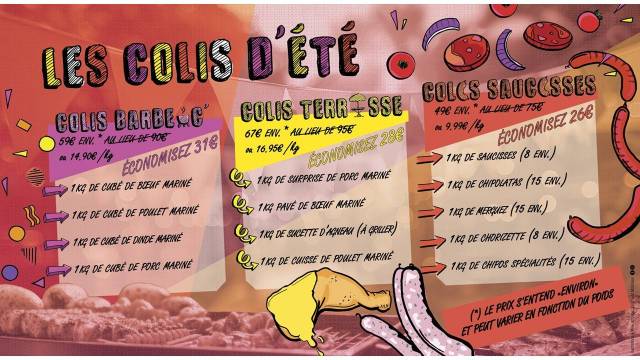 LES COLIS D'ÉTÉ
COLIS BARBEUC'
59€ ENV. * AU LIEU DE 90€
ou 14,90€/kg
ÉCONOMISEZ 31€
1 KG DE CUBE DE BŒUF MARINÉ
1 KG DE CUBE DE POULET MARINÉ
1 KG DE CUBE DE DINDE MARINÉ
1 KG DE CUBE DE PORC MARINÉ
COLIS TERRASSE
67€ ENV. * AU LIEU DE 95€
ou 16,95€/kg
ÉCONOMISEZ 28€
1 KG DE SURPRISE DE PORC MARINÉ
1 KG PAVÉ DE BŒUF MARINÉ
1 KG DE SUCETTE D'AGNEAU (À GRILLER)
1 KG DE CUISSE DE POULET MARINÉ
COLIS SAUCISSES
49€ ENV. * AU LIEU DE 75€
ou 9,99€/kg
ÉCONOMISEZ 26€
1 KG DE SAUCISSES (8 ENV.)
1 KG DE CHIPOLATAS (15 ENV.)
1 KG DE MERGUEZ (15 ENV.)
1 KG DE CHORIZETTE (8 ENV.)
1 KG DE CHIPOS SPÉCIALITÉS (15 ENV.)
(*) LE PRIX S'ENTEND «ENVIRON»
ET PEUT VARIER EN FONCTION DU POIDS